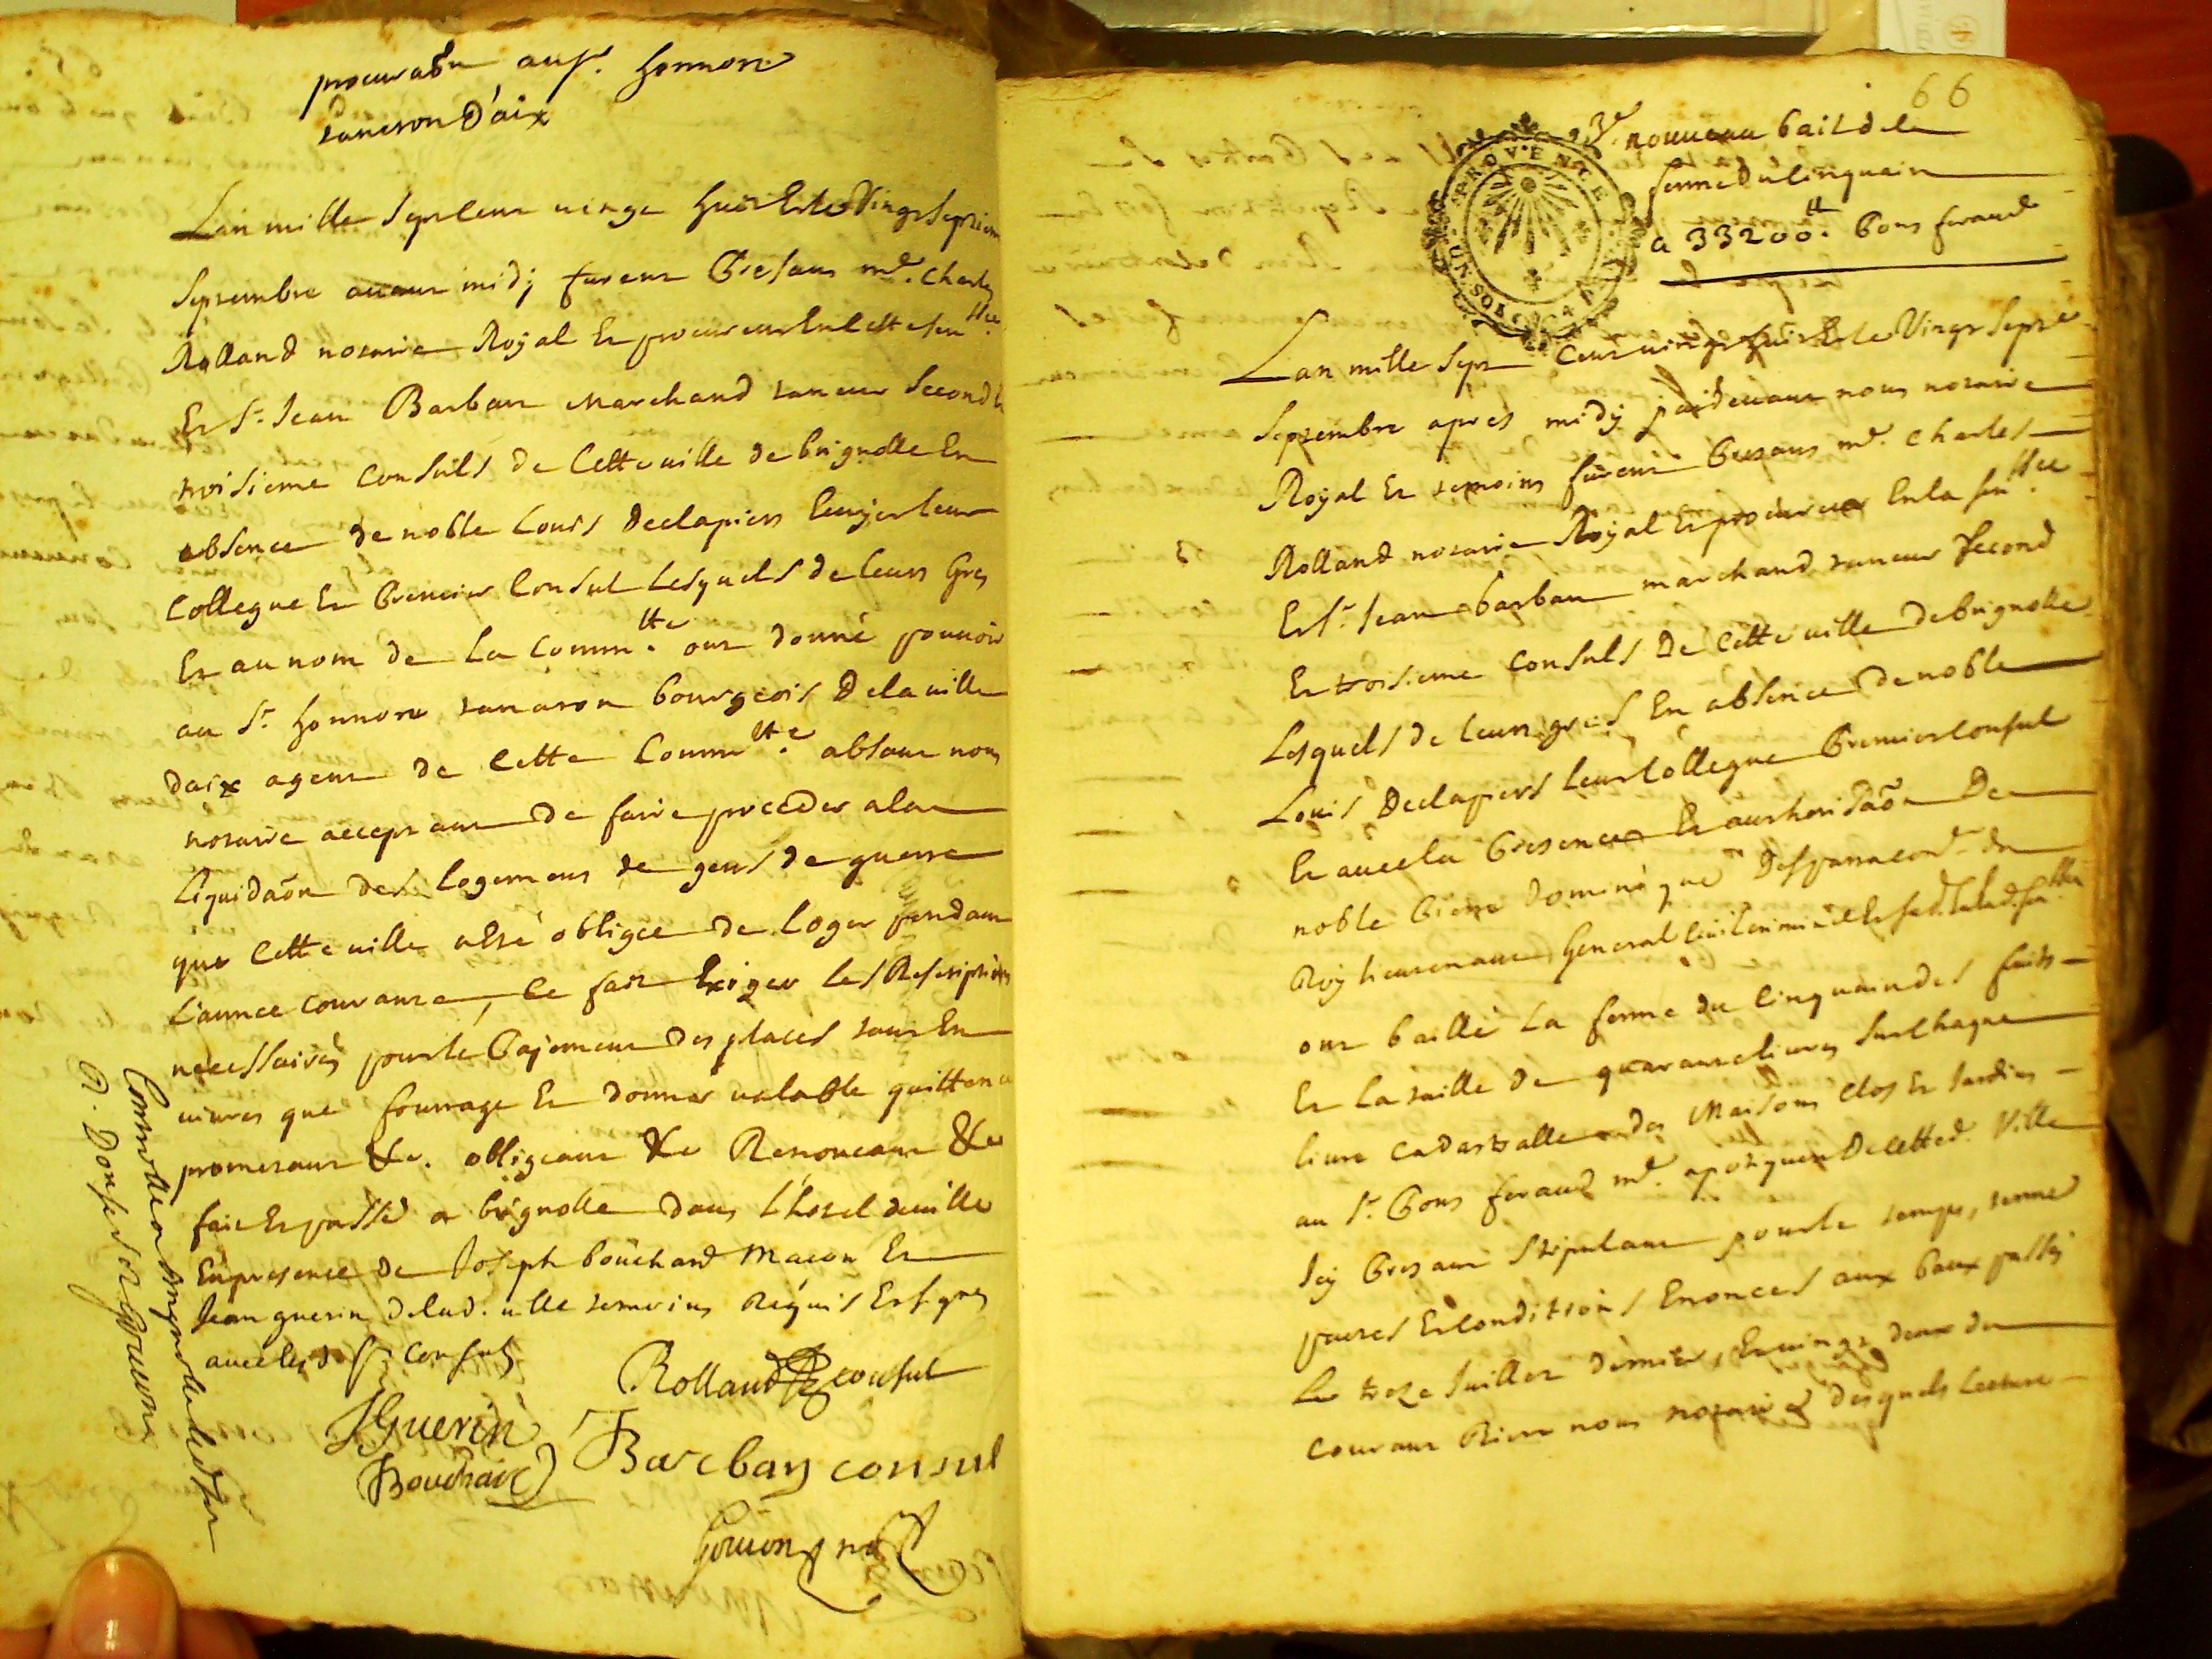 procuraõn au sr. honnoré
tanaron d'aix
Lan mille sept cent vingt huit et le vingt septieme
septembre avant midy furent presans me. charles
Rolland notaire Royal et procureur en cette sen.sse
et sr. Jean Barban marchand taneur second et
troisieme consuls de cette ville de brignolle en
absence de noble Louis declapiers leur
collegue et premier consul lesquels de leurs gres
et au nom de la comm.tte ont donné pouvoir
au sr. honnore tanaron bourgeois de la ville
daix agent de cette comm.tte absant nous
notaire acceptant de faire proceder a la
liquidaõn des logemens de gens de guerre
que cette ville a esté obligée de loger pendant
l'annee courante, ce fait exiger les rescriptions
necessaires pour le payement des places tant en
vivres que fourrage et donner valable quittance
prometant &c. obligeant &c Renonceant &c
fait et passé a brignolle dans l'hotel de ville
en presence de Joseph bouchard macon et
Jean guerin de lad. ville temoins Requis et signes
avec les d. srs consuls
Rolland consul
J Guerin
Barban consul
Bouchard
Gouion not
Controllé a brignolle led. jour
66
3e. nouveau bail de la
ferme du cinquain
a 33200.tt Pons feraud
PROVENCE
UN SOL
Lan mille sept cent vingt huit et le vingt septe
septembre apres midy pardevant nous notaire
Royal et temoins furent presans me. charles
Rolland notaire Royal et procureur en la sen.sse
et sr. Jean barban marchand taneur second
et troisieme consuls de cette ville de brignolle
lesquels de leurs gres en absence de noble
Louis declapiers leur collegue premier consul
et avec la presence et authorisaõn de
noble pierre dominique desparra conr. du
Roy lieutenant general civil criminel en lad. sen.sse
ont baillé la ferme du cinquain des fruits
et la taille de quarante livres sur chaque
livre cadastralle des maisons clos et jardins
au sr. Pons feraud me. apotiquere de cette d. ville
icy presant stipulant pour le temps, terme
pactes et conditions enonces aux baux passes
le treze juillet dernier, et vingt deux du
courant Riere nous notaire desquels lecture